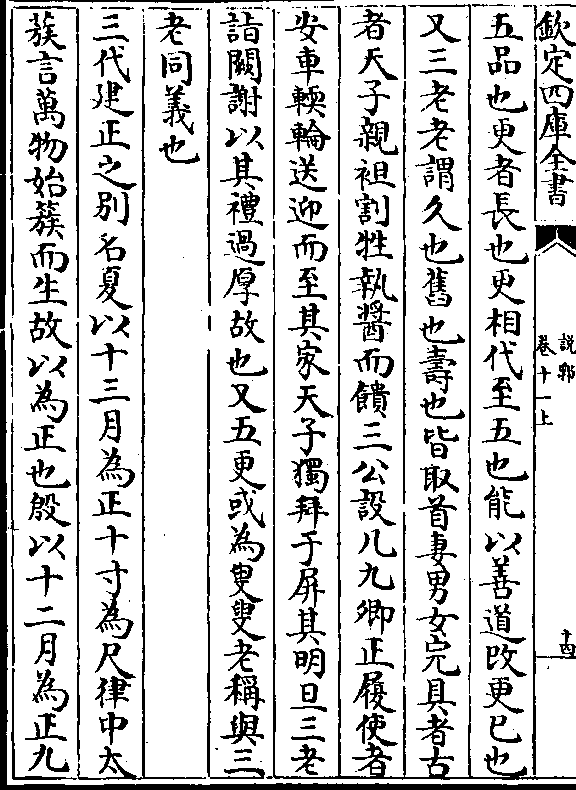 欽定四庫全書
說郛
卷十一上
十四
五品也更者長也更相代至五也能以善道改更已也
又三老老謂久也舊也壽也皆取首妻男女完具者古
者天子親袒割牲執醬而饋三公設几九卿正履使者
安車輭輪送迎而至其家天子獨拜于屏其明旦三老
詣闕謝以其禮過厚故也又五更或為叟叟老稱與三
老同義也
三代建正之別名夏以十三月為正十寸為尺律中太
蔟言萬物始蔟而生故以為正也殷以十二月為正九